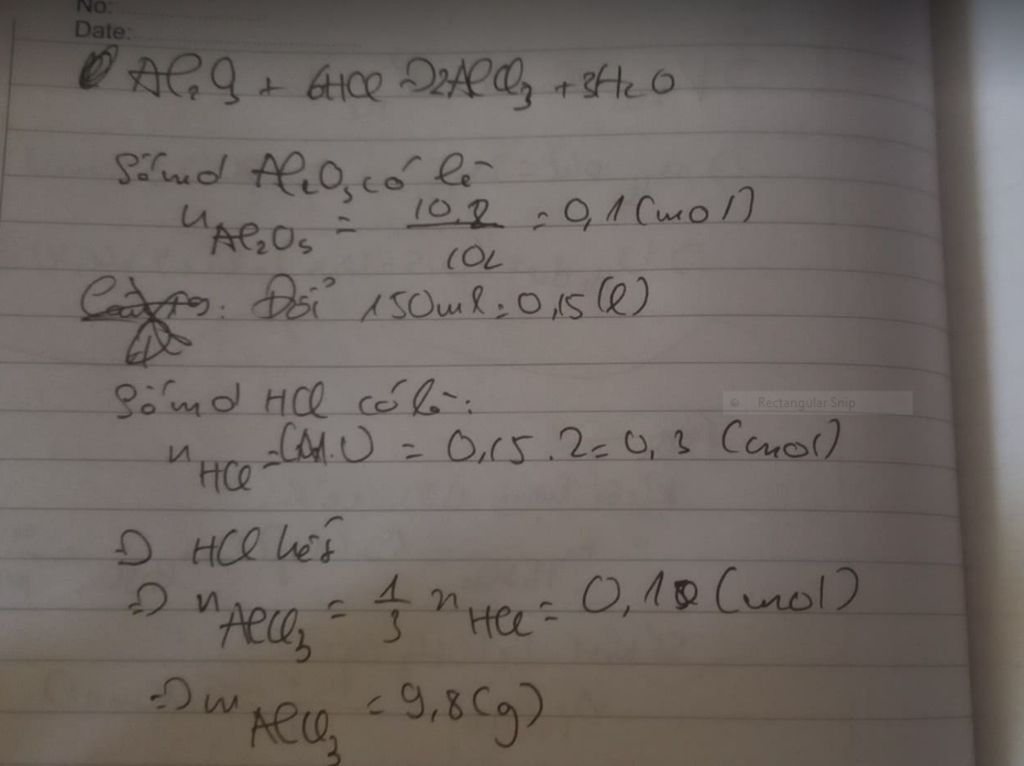 No:
Date:
Al₂O₃ + 6HCl => 2AlCl₃ + 3H₂O
Số mol Al₂O₃ có là
n Al₂O₃ = 10.2 / 102 = 0,1 (mol)
Đổi 150ml = 0,15 (l)
Số mol HCl có là:
n HCl = (M.V) = 0,15 . 2 = 0,3 (mol)
=> HCl hết
=> n AlCl₃ = 1/3 n HCl = 0,1 (mol)
=> m AlCl₃ = 9,8 (g)
Rectangular Snip